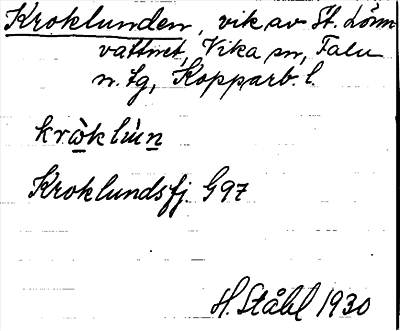 Kroklunden, vik av St. Lönn
vattnet, Vika sn, Falu
n. tg, Kopparb. l.
kròklùn
Kroklundsfj. G 97
H. Ståhl 1930